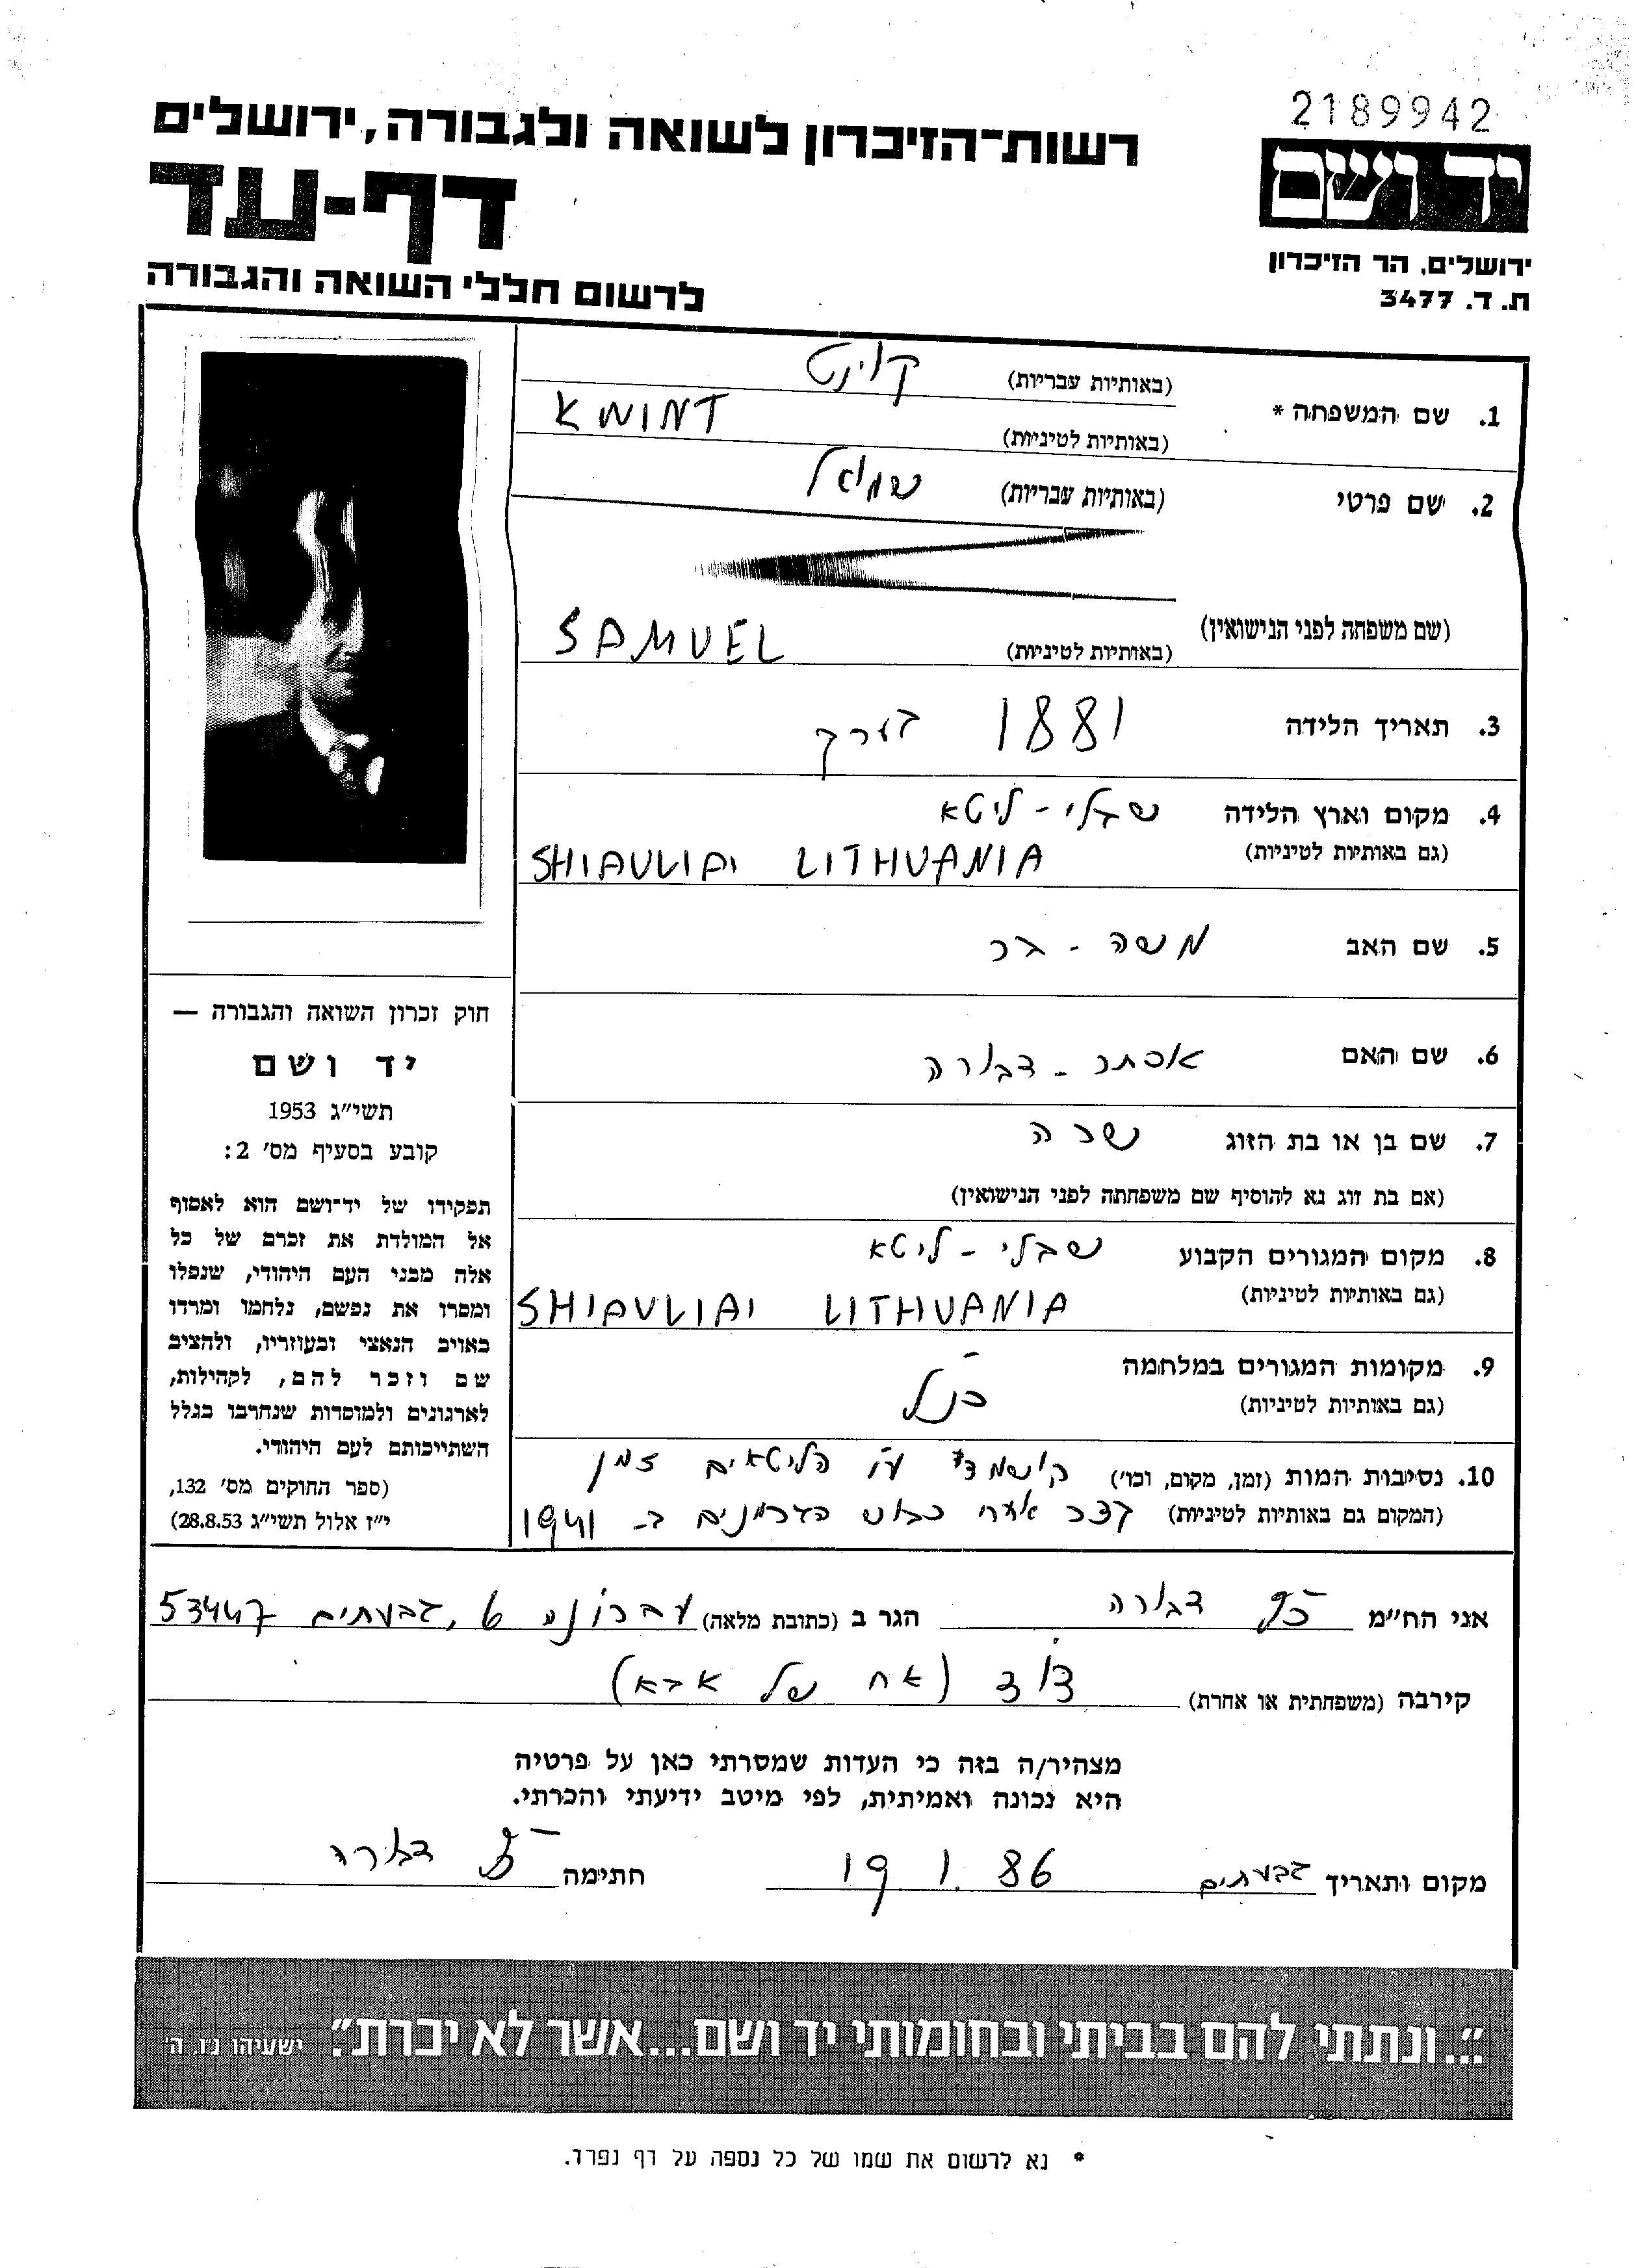 2189942
יד ושם
ירושלים, הר הזיכרון
ת. ד. 3477
רשות-הזיכרון לשואה ולגבורה, ירושלים
דף-עד
לרשום חללי השואה והגבורה
1. שם המשפחה * (באותיות עבריות) קוינט
(באותיות לטיניות) KWINT
2. שם פרטי (באותיות עבריות) שמואל
(שם משפחה לפני הנישואין)
(באותיות לטיניות) SAMUEL
3. תאריך הלידה 1881 בערך
4. מקום וארץ הלידה שבלי - ליטא
(גם באותיות לטיניות) SHIAULIAI LITHUANIA
5. שם האב משה - בר
6. שם האם אסתר - דבורה
7. שם בן או בת הזוג שרה
(אם בת זוג נא להוסיף שם משפחתה לפני הנישואין)
8. מקום המגורים הקבוע שבלי - ליטא
(גם באותיות לטיניות) SHIAULIAI LITHUANIA
9. מקומות המגורים במלחמה
(גם באותיות לטיניות) כנ"ל
10. נסיבות המות (זמן, מקום, וכו') הושמד ע"י הליטאים זמן
(המקום גם באותיות לטיניות) קצר אחרי כבוש הגרמנים ב- 1941
חוק זכרון השואה והגבורה —
יד ושם
תשי"ג 1953
קובע בסעיף מס' 2:
תפקידו של יד-ושם הוא לאסוף
אל המולדת את זכרם של כל
אלה מבני העם היהודי, שנפלו
ומסרו את נפשם, נלחמו ומרדו
באויב הנאצי ובעוזריו, ולהציב
שם וזכר להם, לקהילות,
לארגונים ולמוסדות שנחרבו בגלל
השתייכותם לעם היהודי.
(ספר החוקים מס' 132,
י"ז אלול תשי"ג 28.8.53)
אני הח"מ דבורה הגר ב (כתובת מלאה) 6, גבעתיים 53447
קירבה (משפחתית או אחרת) דוד (אח של אבא)
מצהיר/ה בזה כי העדות שמסרתי כאן על פרטיה
היא נכונה ואמיתית, לפי מיטב ידיעתי והכרתי.
מקום ותאריך גבעתיים 19.1.86 חתימה דבורה
"...ונתתי להם בביתי ובחומותי יד ושם...אשר לא יכרת". ישעיהו נ"ו, ה'
* נא לרשום את שמו של כל נספה על דף נפרד.